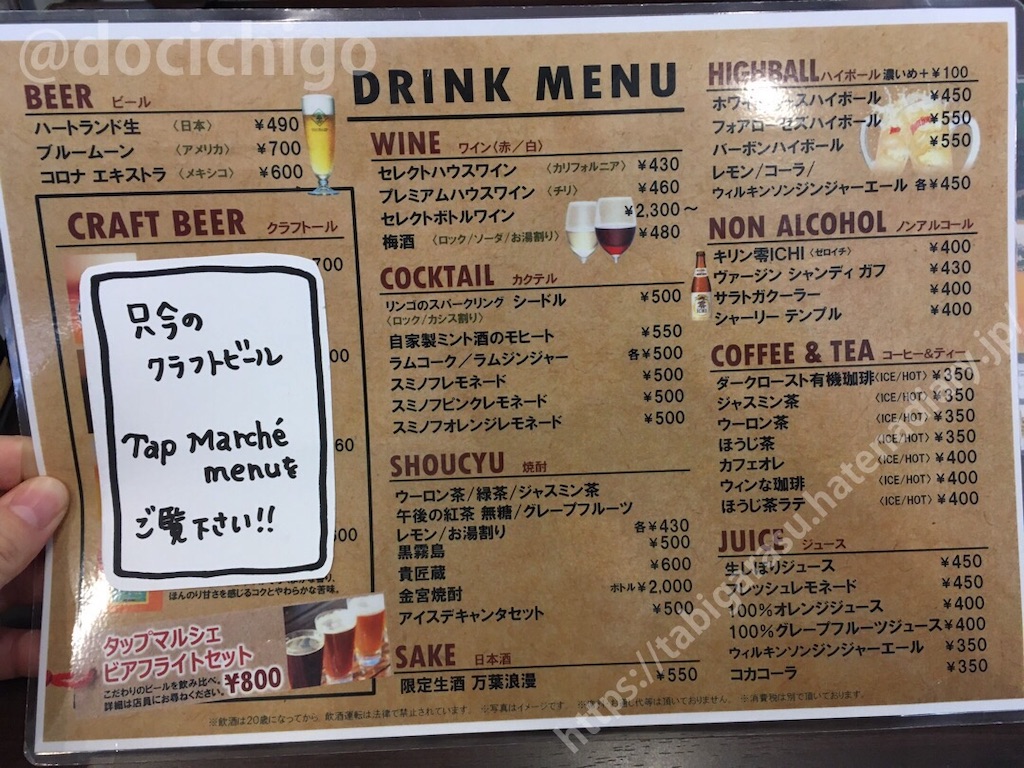 @docichigo
DRINK MENU
BEER ビール
ハートランド生 〈日本〉 ¥490
ブルームーン 〈アメリカ〉 ¥700
コロナ エキストラ 〈メキシコ〉 ¥600
CRAFT BEER クラフトール
700
只今の
クラフトビール
Tap Marché
menuを
ご覧下さい!!
00
60
ほんのり甘さを感じるコクとやわらかな苦味。
タップマルシェ
ビアフライトセット
こだわりのビールを飲み比べ。
詳細は店員にお尋ねください。 ¥800
WINE ワイン〈赤/白〉
セレクトハウスワイン 〈カリフォルニア〉 ¥430
プレミアムハウスワイン 〈チリ〉 ¥460
セレクトボトルワイン ¥2,300～
梅酒 〈ロック/ソーダ/お湯割り〉 ¥480
COCKTAIL カクテル
リンゴのスパークリング シードル ¥500
〈ロック/カシス割り〉
自家製ミント酒のモヒート ¥550
ラムコーク/ラムジンジャー 各¥500
スミノフレモネード ¥500
スミノフピンクレモネード ¥500
スミノフオレンジレモネード ¥500
SHOUCYU 焼酎
ウーロン茶/緑茶/ジャスミン茶
午後の紅茶 無糖/グレープフルーツ
レモン/お湯割り 各¥430
黒霧島 ¥500
貴匠蔵 ¥600
金宮焼酎 ボトル¥2,000
アイスデキャンタセット ¥500
SAKE 日本酒
限定生酒 万葉浪漫 ¥550
HIGHBALL ハイボール 濃いめ+¥100
ホワイトホースハイボール ¥450
フォアローゼズハイボール ¥550
バーボンハイボール ¥550
レモン/コーラ/
ウィルキンソンジンジャーエール 各¥450
NON ALCOHOL ノンアルコール
キリン零ICHI 〈ゼロイチ〉 ¥400
ヴァージン シャンディ ガフ ¥430
サラトガクーラー ¥400
シャーリー テンプル ¥400
COFFEE & TEA コーヒー&ティー
ダークロースト有機珈琲〈ICE/HOT〉 ¥350
ジャスミン茶 〈ICE/HOT〉 ¥350
ウーロン茶 〈ICE/HOT〉 ¥350
ほうじ茶 〈ICE/HOT〉 ¥350
カフェオレ 〈ICE/HOT〉 ¥400
ウィンな珈琲 〈ICE/HOT〉 ¥400
ほうじ茶ラテ 〈ICE/HOT〉 ¥400
JUICE ジュース
生しぼりジュース ¥450
フレッシュレモネード ¥450
100%オレンジジュース ¥400
100%グレープフルーツジュース ¥400
ウィルキンソンジンジャーエール ¥350
コカコーラ ¥350
※飲酒は20歳になってから。飲酒運転は法律で禁止されています。 ※写真はイメージです。 し代等は頂いておりません。 ※消費税は別で頂いております。